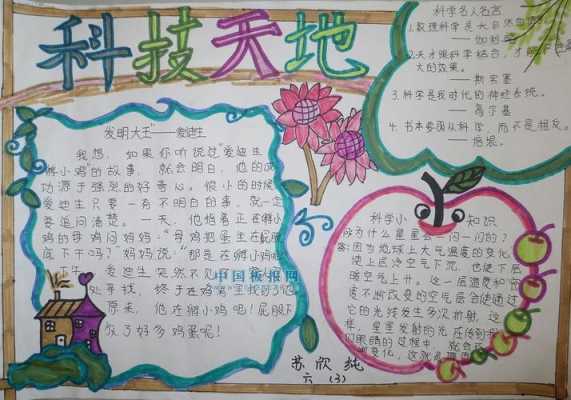 科技天地
发明大王"——爱迪生
我想，如果你听说过"爱迪生
孵小鸡"的故事，就会明白，他的成
功源于强烈的好奇心。很小的时候
爱迪生只要一有不明白的事，就一定
要追问清楚。一天，他指着正在孵小
鸡的母鸡问妈妈："母鸡把蛋坐在屁股
底下干吗？"妈妈说："那是在孵小鸡
爱迪生突然不见了
处寻找，终于在鸡窝里找到了他
原来，他在孵小鸡呢！屁股下
放了好多鸡蛋呢！
中国板报网
科学名人名言
1.数理科学是大自然
——伽利略
2.天才跟科学结合，才能
大的效果。
——斯宾塞
3.科学是我时代的神经系统。
——高尔基
4.书本要跟从科学，而不是相反。
——培根。
科学小知识
问为什么星星会一闪一闪的？
答：因为地球上大气温度的变化，
使上层冷空气下沉，也使下层
暖空气上升。这一层温度和密
度不断改变的空气层会使通过
它的光线发生多次折射，这
样，星星发射的光在传到
们眼睛的过程中，就会
变化，这就是
苏欣纯
六（3）